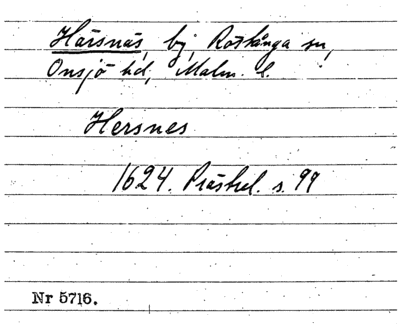 Härsnäs, by, Röstånga sn,
Onsjö hd, Malm. l.
Hersnes
1624. Prästrel. s. 99
Nr 5716.